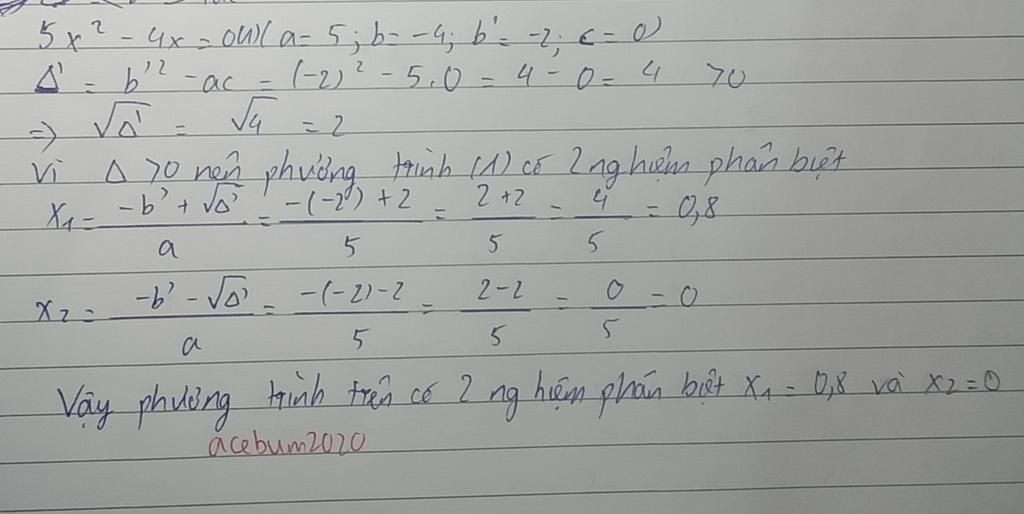 5x² - 4x = 0 (1) (a = 5; b = -4; b' = -2; c = 0)
Δ' = b'² - ac = (-2)² - 5.0 = 4 - 0 = 4 >0
=> √Δ' = √4 = 2
Vì Δ >0 nên phương trình (1) có 2 nghiệm phân biệt
x₁ = (-b' + √Δ')/a = (-(-2) + 2)/5 = (2+2)/5 = 4/5 = 0,8
x₂ = (-b' - √Δ')/a = (-(-2) - 2)/5 = (2-2)/5 = 0/5 = 0
Vậy phương trình trên có 2 nghiệm phân biệt x₁ = 0,8 và x₂ = 0
acebum2020